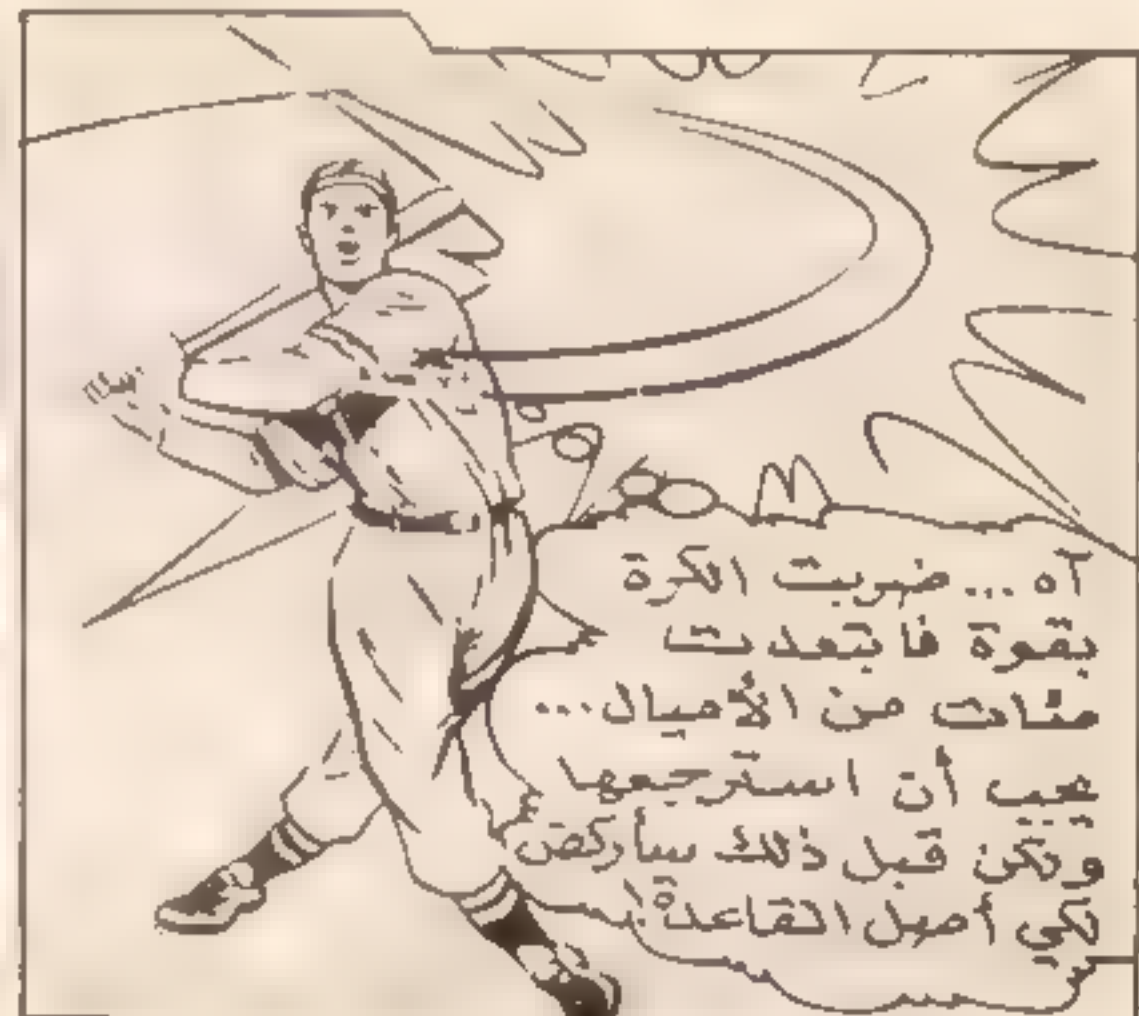 آه ... ضربت الكرة
بقوة فابتعدت
مئات من الأميال ...
يجب أن استرجعها
ولكن قبل ذلك سأركض
لكي أصل القاعدة!